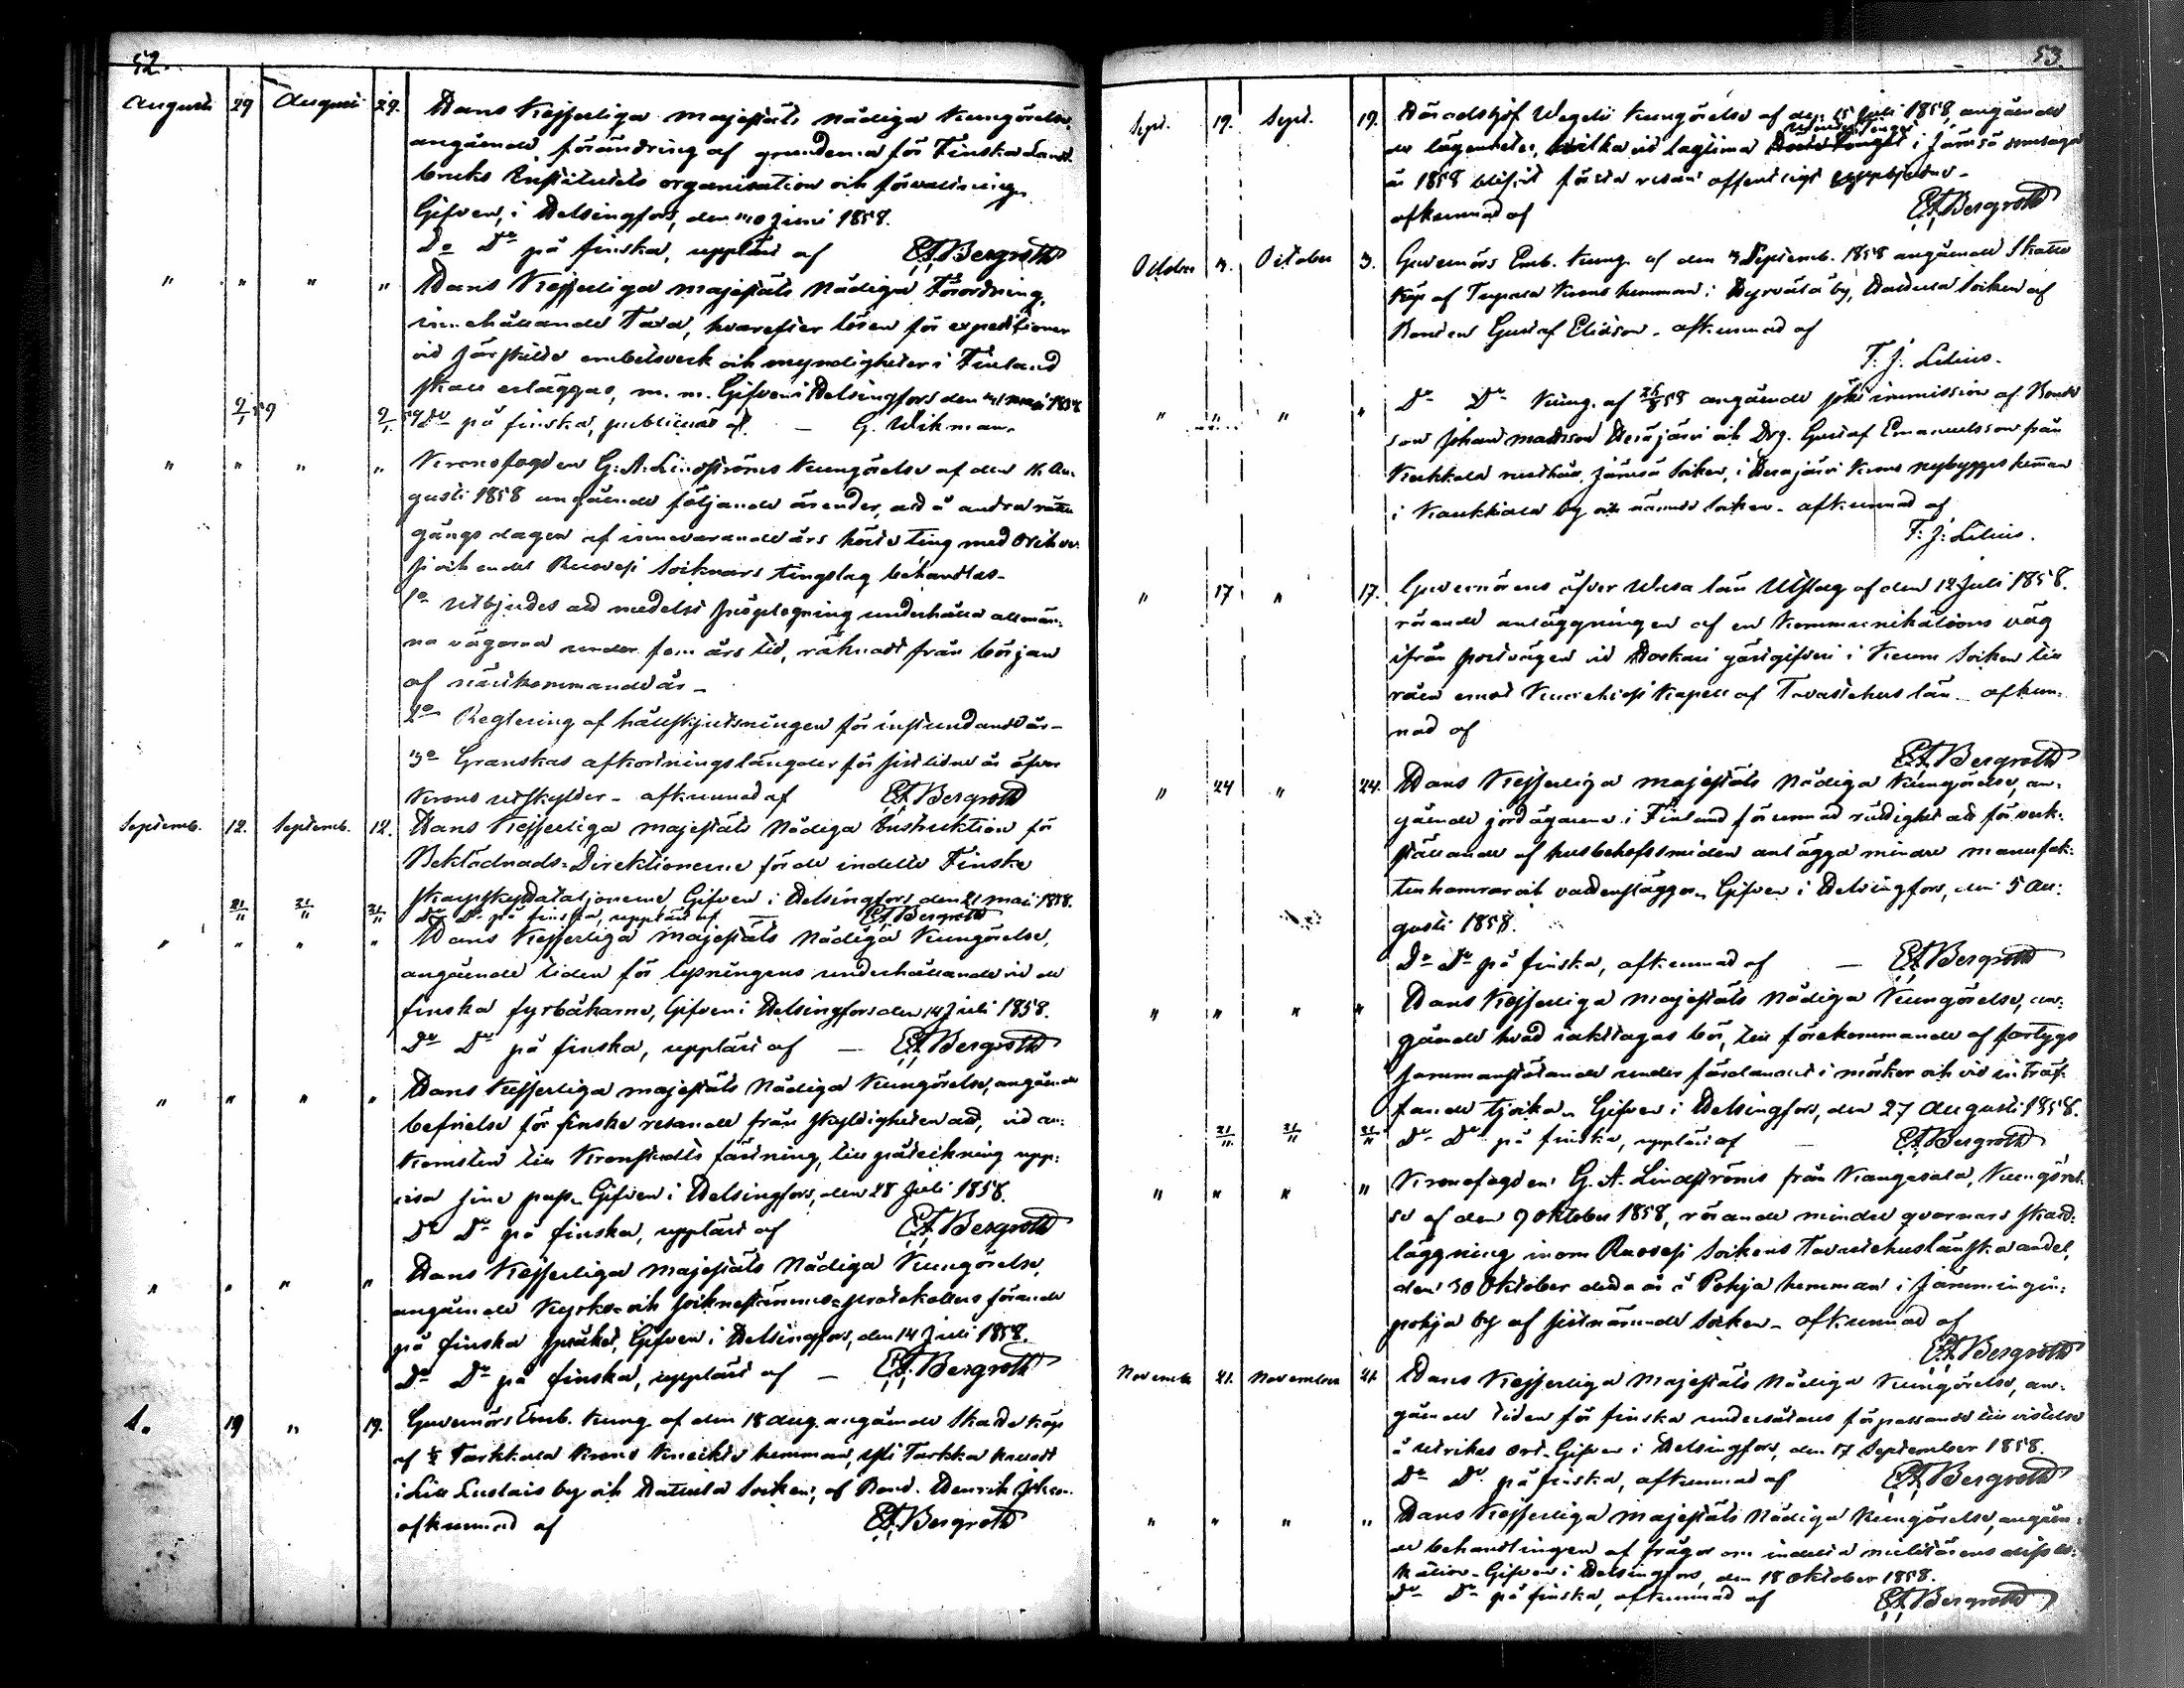 52.
Augusti 29 Augusti 29. Hans Kejserliga Majestäts Nådiga Kungörelse,
angående förändring af grunderna för Finska Landt-
bruks Institutets organisation och förvaltning.
Gifven, i Helsingfors, den 10 Juni 1858.
Do Do på finska, uppläst af EABergroth
" " " " Hans Kejserliga Majestäts Nådiga Förordning,
innehållande Taxa, hvarefter lösen för expeditioner
vid särskilde embetsverk och myndigheter i Finland
skall erläggas, m. m. Gifven i Helsingfors den Maj 1858
9/1 59 9/1 59 Do på finska, publicerad af — G. Wikman.
" " " " Kronofogden G. A. Lindströms Kungörelse af den 16 Au-
gusti 1858 angående följande ärender, som å andra rätte-
gångs dagen af innevarande års höste ting med Orihve-
si och endel Ruovesi Socknars tingslag behandlas —
1o Utbjudes att medelst snöplogning underhålla allmän-
na vägarna under fem års tid, räknadt från början
af nästkommande år —
2o Reglering af hållskjutsningen för instundande år —
3o Granskas afkortningslängder för sistlidne år öfver
Krono utskylder — afkunnad af EABergroth
Septemb. 12. Septemb. 12. Hans Kejserliga Majestäts Nådiga Instruktion för
Beklädnads-Direktionerne för de indelte Finske
Skarpskyttebataljonerne Gifven i Helsingfors den 21 Maj 1858.
21/11 21/11 21/11 Do Do på finska, uppläst af — EABergroth
" " " " Hans Kejserliga Majestäts Nådiga Kungörelse,
angående tiden för lysningens underhållande vid de
finska fyrbåkarne, Gifven i Helsingfors den 14 Juli 1858.
Do Do på finska, uppläst af — EABergroth
" " " " Hans Kejserliga Majestäts Nådiga Kungörelse, angående
befrielse för finske resande från skyldigheten att, vid an-
komsten till Kronstadts fästning, till påteckning upp-
visa sine pass. Gifven i Helsingfors, den 28 Juli 1858.
Do Do på finska, uppläst af EABergroth
" " " " Hans Kejserliga Majestäts Nådiga Kungörelse,
angående Kyrko- och sockneståmmo-protokollers förande
på finska språket, Gifven i Helsingfors, den 14 Juli 1858.
Do Do på finska, uppläst af — EABergroth
S. 19 " 19. Guvernörs Emb. Kung. af den 18 Aug. angående Skatte köp
af 1/2 Tarkkala Krono hemman,
i by och Hattula Socken, af Bond. Henrik
afkunnad af EABergroth
53.
Sept. 19. Sept. 19. Häradshöf. Wegelii Kungörelse af den 15 Juli 1858, angående
de lägenheter, hvilka vid lagtima i Jämsä domsaga
år 1858 blifvit första resan offentligt uppbjudne —
afkunnad af EABergroth
October 3. October 3. Guvernörs Emb. Kung. af den 3 Septemb. 1858 angående Skatte
köp af Krono hemman i by, Socken af
Bonden Gustaf Eliasson — afkunnad af
F. J. Lilius.
" " " " Do Do Kung. af angående sökt immission af Bonde
son Johan Mattsson och Drg. Gustaf Emanuelsson från
rusthåll, Jämsä Socken, i Krono nybygges hemman
i by och nämnde Socken — afkunnad af
F. J. Lilius.
" 17 " 17. Guvernörens öfver Wasa län Utslag af den 12 Juli 1858.
rörande anläggningen af en Kommunikations väg
ifrån postvägen vid gästgifveri i Keuru Socken till
råen emot Kapell af Tavastehus län — afkun-
nad af
EABergroth
" 24 " 24. Hans Kejserliga Majestäts Nådiga Kungörelse, an-
gående jordägarene i Finland förunnad rättighet att för verk-
ställande af husbehofssmiden anlägga mindre manufak-
turhamrar och vattenslägger. Gifven i Helsingfors, den 5 Au-
gusti 1858.
Do Do på finska, afkunnad af — EABergroth
" " " " Hans Kejserliga Majestäts Nådiga Kungörelse, an-
gående hvad iakttagas bör, till förekommande af fartygs
sammanstötande under färd i mörker och vid inträf-
fande tjocka. Gifven i Helsingfors, den 27 Augusti 1858.
21/11 21/11 21/11 Do Do på finska, uppläst af — EABergroth
" " " " Kronofogden G. A. Lindströms från Kangasala, Kungörel-
se af den 9 Oktober 1858, rörande mindre qvarnars skatt-
läggning inom Ruovesi Sockens Tavastehus länska andel,
den 30 Oktober detta år å Pohja hemman i
pohja by af sistnämnde Socken — afkunnad af
EABergroth
Novemb. 21. November 21. Hans Kejserliga Majestäts Nådiga Kungörelse, an-
gående tiden för finska undersåtars förpassande till vistelse
å utrikes ort. Gifven i Helsingfors, den 17 September 1858.
Do Do på finska, afkunnad af EABergroth
" " " " Hans Kejserliga Majestäts Nådiga Kungörelse, angåen-
de behandlingen af frågor om indelta militärens dislo-
kation — Gifven i Helsingfors, den 18 Oktober 1858.
Do Do på finska, afkunnad af EABergroth